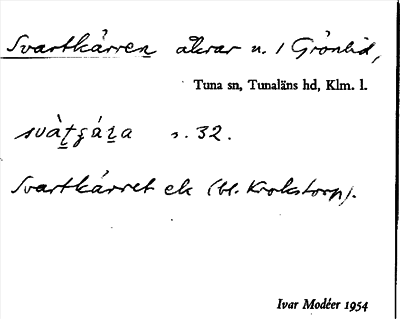 Svartkärren åkrar u. / Grönlid,
Tuna sn, Tunaläns hd, Klm. l.
svàt̲ʒáꭋa s. 32.
Svartkärret ek (bl. Krokstorp).
Ivar Modéer 1954